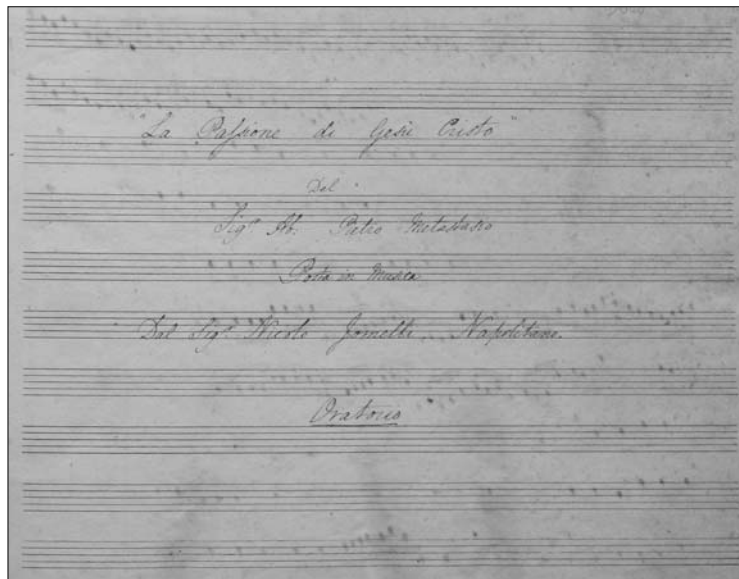 "La Passione di Gesù Cristo"
Del
Sigr. Ab. Pietro Metastasio
Posta in Musica
Dal Sigr. Nicolo Jomelli Napolitano.
Oratorio